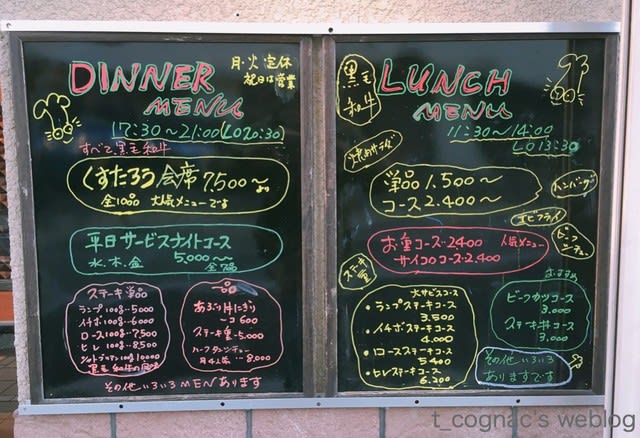 DINNER
MENU
月・火定休
祝日は営業
17:30〜21:00(LO20:30)
すべて黒毛和牛
くすたろう会席 7,500〜
全10品 大人気メニューです
平日サービスナイトコース
水、木、金 5,000〜
全7品
ステーキ単品
ランプ100g‥5000
イチボ100g‥6000
ロース100g‥7,500
ヒレ100g‥8,500
シャトーブリアン100g10000
黒毛和牛の
あぶり丼にぎり
一コ600
ステーキ重‥5,000
ハーフタンシチュー
8,000
その他いろいろMENあります
黒毛
和牛
LUNCH
MENU
11:30〜14:00
LO13:30
焼肉サラダ
単品 1.500〜
コース 2.400〜
ハンバーグ
エビフライ
ビーフ
シチュー
お重コース‥2,400 人気メニュー
サイコロコース‥2.400
ステーキ
重
大サビスコース
・ランプステーキコース
3.500
・イチボステーキコース
4.000
・ロースステーキコース
5400
・ヒレステーキコース
6.200
おすすめ
ビーフカツコース
3,000
ステーキ丼コース
3,000
その他いろいろ
ありますです
t_cognac's weblog